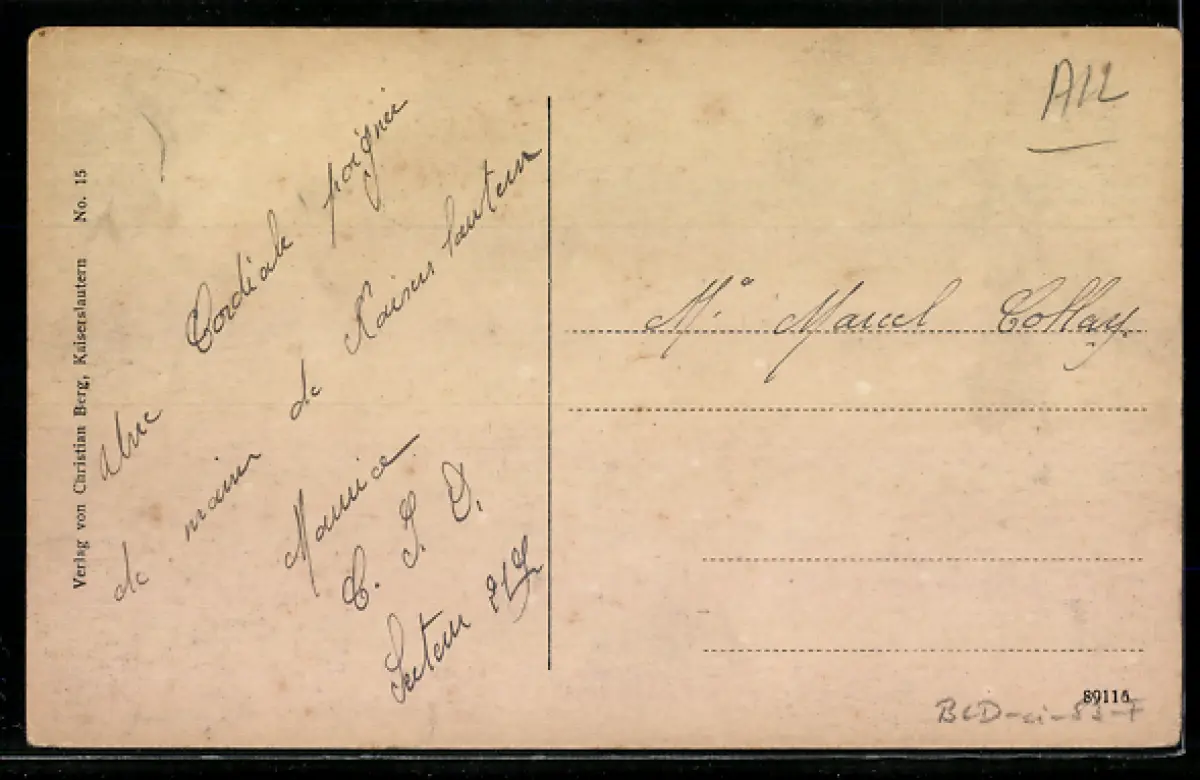 Verlag von Christian Berg, Kaiserslautern No. 15
Une Cordiale poignée
de mains de Kaiserslautern
Maurice
C. S. D.
Secteur 219
All
Mr Marcel Collay.
89116
BLD-ci-83-F